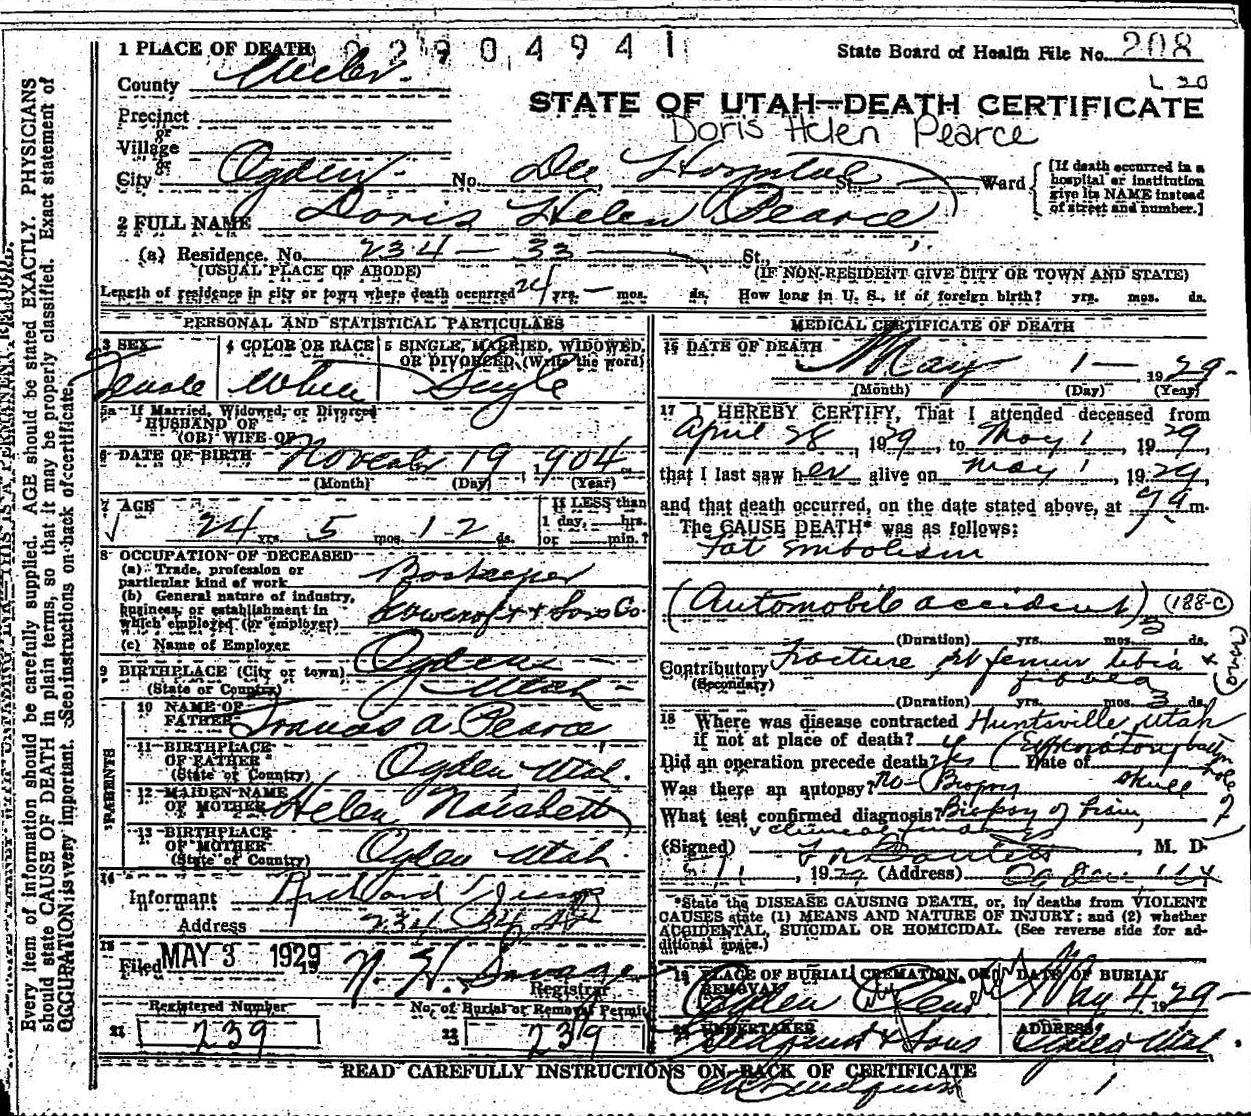 1 PLACE OF DEATH 22904941 State Board of Health File No. 208
L 20
County Weber
STATE OF UTAH—DEATH CERTIFICATE
Precinct
or
Village
Doris Helen Pearce
or
City Ogden No. Dee Hospital St., Ward
[If death occurred in a hospital or institution give its NAME instead of street and number.]
2 FULL NAME Doris Helen Pearce
(a) Residence. No. 234 - 33 St.,
(USUAL PLACE OF ABODE) (IF NON-RESIDENT GIVE CITY OR TOWN AND STATE)
Length of residence in city or town where death occurred 24 yrs. — mos. ds. How long in U. S., if of foreign birth? yrs. mos. ds.
PERSONAL AND STATISTICAL PARTICULARS
3 SEX Female
4 COLOR OR RACE White
5 SINGLE, MARRIED, WIDOWED, OR DIVORCED (Write the word) Single
5a If Married, Widowed, or Divorced
HUSBAND OF
(OR) WIFE OF
6 DATE OF BIRTH November 19, 1904
(Month) (Day) (Year)
7 AGE 24 yrs. 5 mos. 12 ds.
If LESS than
1 day, hrs.
or min.?
8 OCCUPATION OF DECEASED
(a) Trade, profession or
particular kind of work Bookkeeper
(b) General nature of industry,
business, or establishment in
which employed (or employer) & Sons Co.
(c) Name of Employer
9 BIRTHPLACE (City or town) Ogden
(State or Country) Utah
PARENTS
10 NAME OF FATHER Francis A Pearce
11 BIRTHPLACE OF FATHER (State or Country) Ogden Utah.
12 MAIDEN NAME OF MOTHER Helen Naisbett
13 BIRTHPLACE OF MOTHER (State or Country) Ogden Utah.
14
Informant
Address 234
15
Filed MAY 3 1929 N. H. Savage
Registrar
Registered Number No. of Burial or Removal Permit
21 239 22 239
MEDICAL CERTIFICATE OF DEATH
16 DATE OF DEATH May 1 — 1929
(Month) (Day) (Year)
17 I HEREBY CERTIFY, That I attended deceased from
April 28, 1929, to May 1 1929
that I last saw her alive on May 1, 1929,
and that death occurred, on the date stated above, at 7 a m.
The CAUSE DEATH* was as follows:
Fat embolism
(Automobile accident) (188-c)
(Duration) yrs. mos. 3 ds.
Contributory Fracture rt femur tibia +
(Secondary) fibula
(Duration) yrs. mos. 3 ds.
18 Where was disease contracted Huntsville, Utah
if not at place of death?
Did an operation precede death? Yes Date of
Was there an autopsy? No - Biopsy skull
What test confirmed diagnosis? Biopsy of brain,
clinical findings
(Signed) M. D.
5/1, 1929 (Address) Ogden Utah
*State the DISEASE CAUSING DEATH, or, in deaths from VIOLENT
CAUSES state (1) MEANS AND NATURE OF INJURY; and (2) whether
ACCIDENTAL, SUICIDAL OR HOMICIDAL. (See reverse side for ad-
ditional space.)
19 PLACE OF BURIAL, CREMATION, OR REMOVAL Ogden City Cem.
DATE OF BURIAL May 4 1929
20 UNDERTAKER Lindquist & Sons
ADDRESS Ogden Utah
READ CAREFULLY INSTRUCTIONS ON BACK OF CERTIFICATE
Every item of information should be carefully supplied. AGE should be stated EXACTLY. PHYSICIANS
should state CAUSE OF DEATH in plain terms, so that it may be properly classified. Exact statement of
OCCUPATION is very important. See instructions on back of certificate.